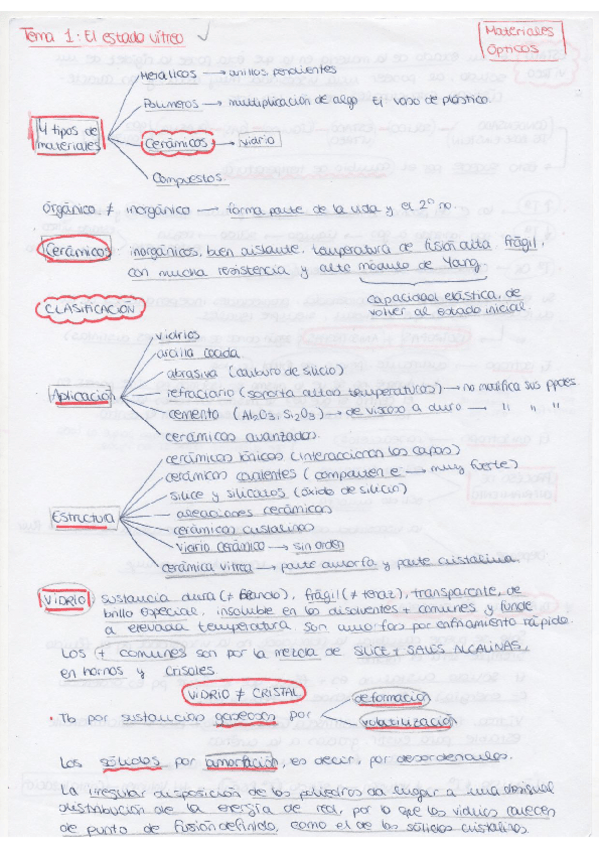 Tema 1: El estado vítreo
Materiales
Ópticos
4 tipos de
materiales
Metálicos → anillos pendientes
Polímeros → multiplicación de algo Ej vaso de plástico.
Cerámicos → vidrio
Compuestos.
Orgánico ≠ inorgánico → forma parte de la vida y el 2º no.
Cerámicos: inorgánicos, buen aislante, temperatura de fusión alta frágil,
con mucha resistencia y alto módulo de Yang
capacidad elástica, de
volver al estado inicial.
CLASIFICACIÓN
Aplicación
vidrios
arcilla cocida
abrasiva (carburo de silicio)
refractario (soporta altas temperaturas) → no modifica sus ppdes
cemento (Al2O3, Si2O3) → de viscoso a duro → " " "
cerámicos avanzados.
Estructura
cerámicos iónicos (interaccionan las capas)
cerámicos covalentes (comparten e- → muy fuerte)
silice y silicatos (óxido de silicio)
aleaciones cerámicas
cerámicos cristalinos
Vidrio cerámico → sin orden
cerámica vítrea → parte amorfa y parte cristalina.
VIDRIO: sustancia dura (≠ blando), frágil (≠ tenaz), transparente, de
brillo especial, insoluble en los disolventes + comunes y funde
a elevada temperatura. Son amorfos por enfriamiento rápido.
Los + comunes son por la mezcla de SILICE + SALES ALCALINAS,
en hornos y crisoles.
VIDRIO ≠ CRISTAL
• Tb por sustancias gaseosas por
deformación
volatilización
Los sólidos por amorfación, es decir, por desordenarlos.
La irregular disposición de los poliedros da lugar a una desigual
distribución de la energía de red, por lo que los vidrios carecen
de punto de fusión definido, como el de los sólidos cristalinos.